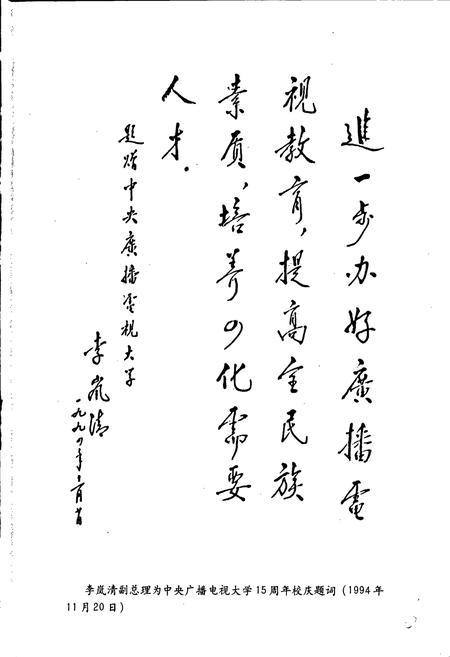 進一步办好廣播電
視教育,提高全民族
素质,培养四化需要
人才.
题赠中央廣播電視大学
李岚清
一九九四年
李岚清副总理为中央广播电视大学15周年校庆题词(1994年
11月20日)